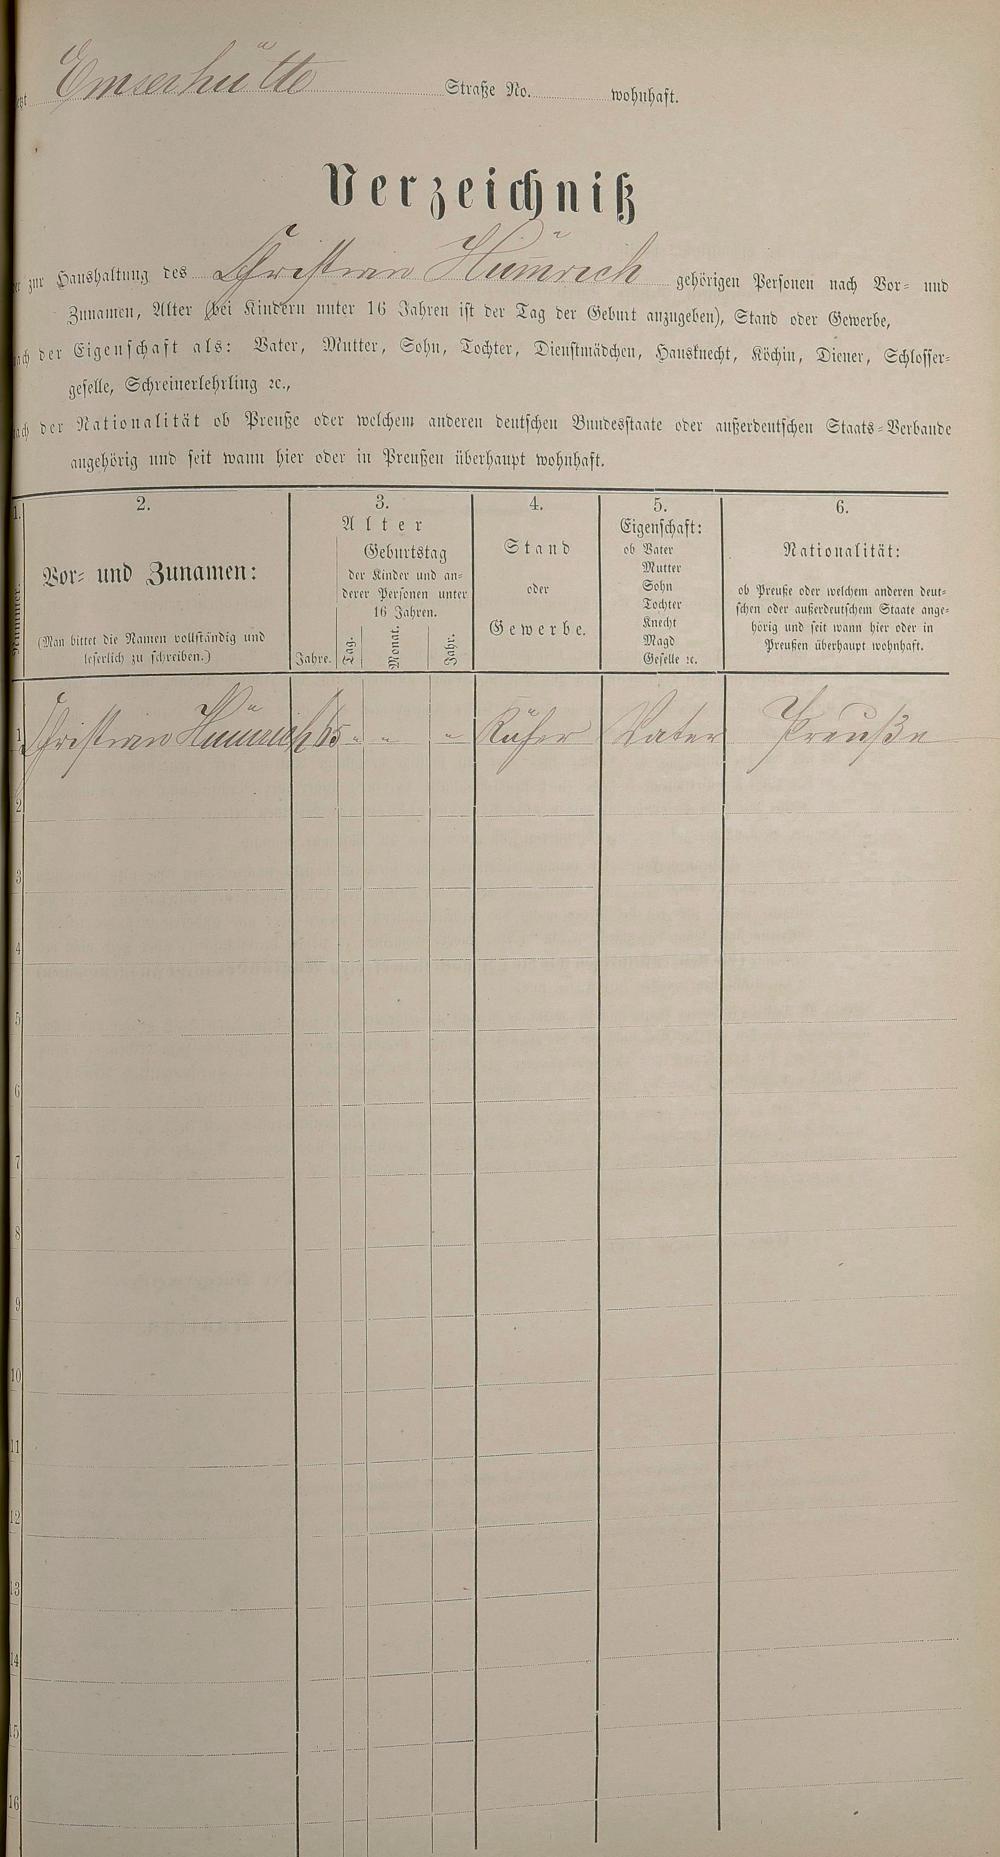 Emserhütte Straße No. wohnhaft.
Verzeichniß
zur Haushaltung des Christian Hümrich gehörigen Personen nach Vor- und
Zunamen, Alter (bei Kindern unter 16 Jahren ist der Tag der Geburt anzugeben), Stand oder Gewerbe,
der Eigenschaft als: Vater, Mutter, Sohn, Tochter, Dienstmädchen, Hausknecht, Köchin, Diener, Schlosser-
geselle, Schreinerlehrling ꝛc.,
der Nationalität ob Preuße oder welchem anderen deutschen Bundesstaate oder außerdeutschen Staats-Verbande
angehörig und seit wann hier oder in Preußen überhaupt wohnhaft.
1.
Nummer.
2.
Vor- und Zunamen:
(Man bittet die Namen vollständig und
leserlich zu schreiben.)
3.
Alter
Geburtstag
der Kinder und an-
derer Personen unter
16 Jahren.
Jahre.
Tag.
Monat.
Jahr.
4.
Stand
oder
Gewerbe.
5.
Eigenschaft:
ob Vater
Mutter
Sohn
Tochter
Knecht
Magd
Geselle ꝛc.
6.
Nationalität:
ob Preuße oder welchem anderen deut-
schen oder außerdeutschem Staate ange-
hörig und seit wann hier oder in
Preußen überhaupt wohnhaft.
1 Christian Hümrich 65 " " " Küfer Vater Preuße
2
3
4
5
6
7
8
9
10
11
12
13
14
15
16